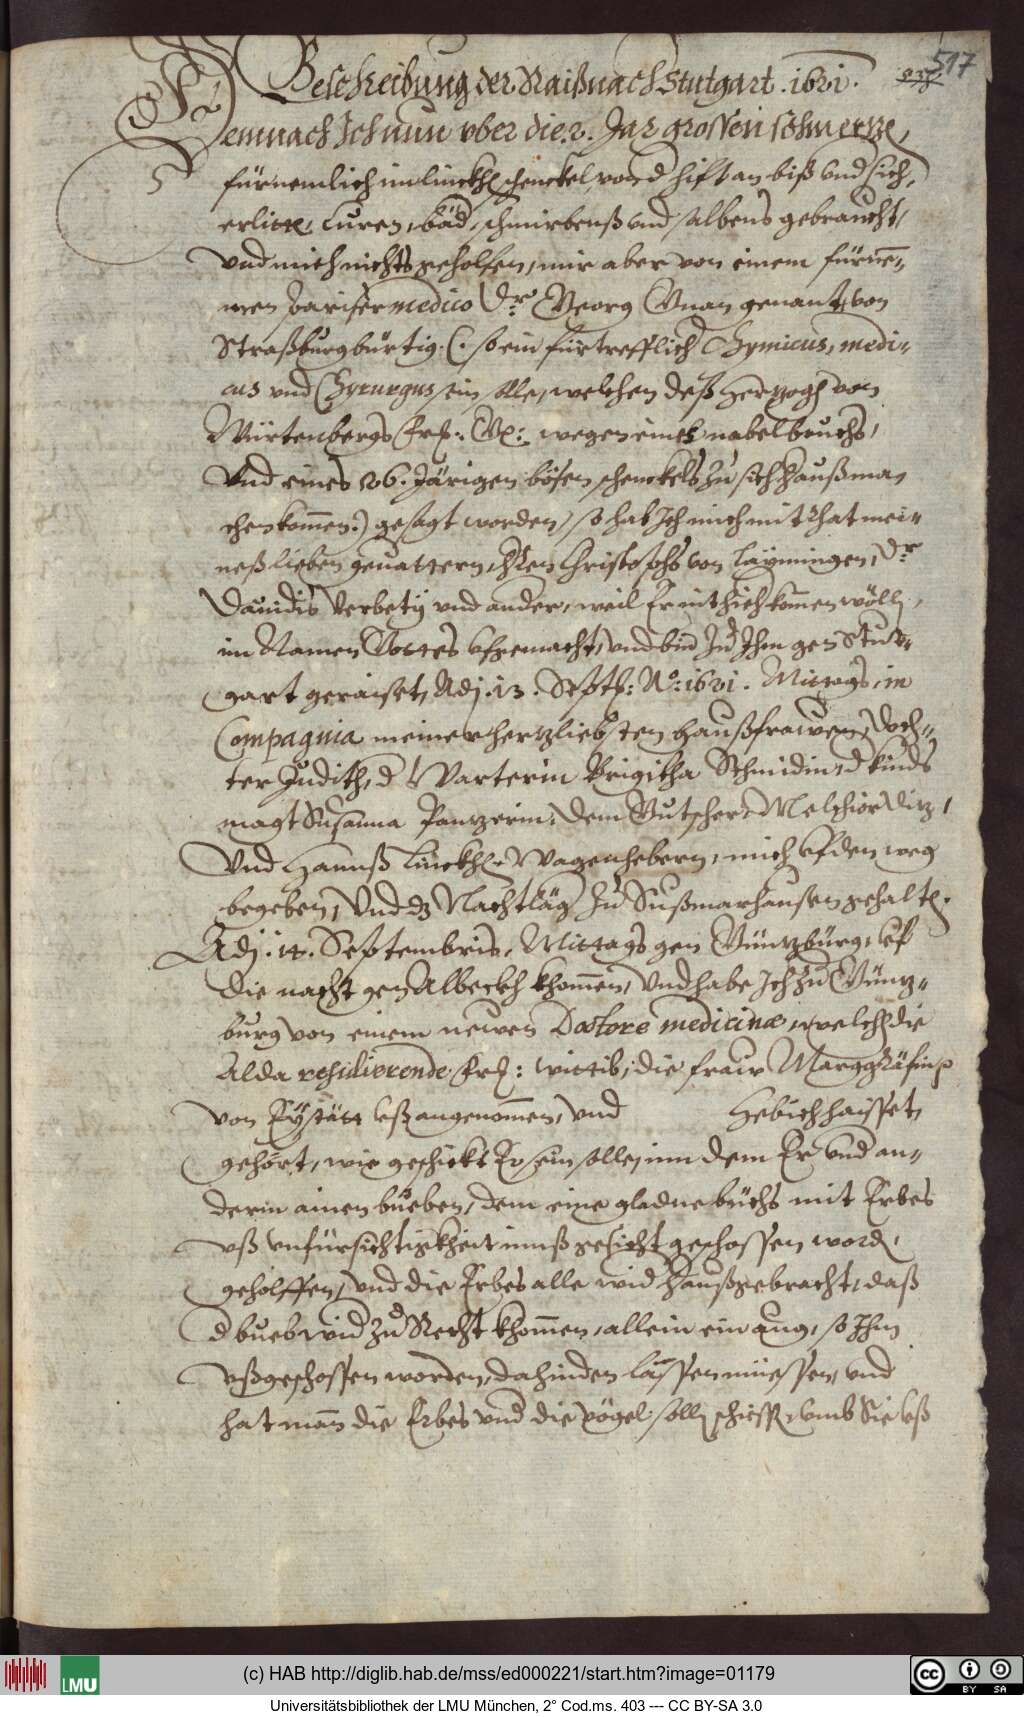 517
Beschreibung der Raiß nach Stutgart .1621.
Demnach Ich nun vber die .2. Jar grossen schmertzen,
fürnemlich im linckhen schenckel von der hift an biß vnd sich,
erlitten, Curen, bäd, schmirbenß vnd salbens gebraucht,
vnd mich nichts geholfen, mir aber von einem fürne-
men Pariser medico Dr. Georg Gnan genant, von
Straßburg bürtig. (: so ein fürtrefflicher Chymicus, medi-
cus vnd Chyrurgus sein solle, welchen deß Hertzogen von
Würtenbergs Frl: Gn: wegen eines nabelbruchs,
vnd eines 26. Järigen bösen schenckels zu sich hauß ma
chen kommen:) gesagt worden, so hab Ich mich mit Rhat mei-
neß lieben geuattern, Herren Christophs von Laymingen, Dr
Dauidis Verbetij vnd ander, weil Er nit hieh kommen wöllen,
im Namen Gottes vfgemacht, vnd bin zu Ihm gen Stut-
gart geraiset, Adj .13. Septb: Ao: 1621. Mittags, in
Compagnia meiner hertzliebsten haußfrawen, Doch-
ter Judith, der Warterin Brigitha Schmidin, der kinds
magt Susanna Pantzerin, dem Gutscher Melchior Dirz,
Vnd Hannß Linckhen Wagenhebern, mich vf den weg
begeben, Vnd dz Nachtläger zu Sußmarhausen gehalten.
Adj. 14. Septembris, Mittags gen Güntzburg, vf
die nacht gen Albeckh khommen, Vnd habe Ich zu Güntz-
burg von einem newen Doctore medicinae, welchen die
Alda residierende Frl: wittib, die fraw Marggräfin
von Eystätt vß angenommen, vnd Hebich haisset,
gehört, wie geschickt Er sein solle, inn dem Er vnd an-
derm ainen bueben, dem eine gladne büchs mit Erbes
vß vnfürsichtigkheit inns gesicht geschossen worden,
geholffen, vnd die Erbes alle wider hauß gebracht, daß
der bueb wider zu Recht khommen, allein ein aug, so Ihm
vßgeschossen worden, dahinden lassen müessen, vnd
hat man die Erbes vnd die vögel sollen schiessen, vmb Sie vß
(c) HAB http://diglib.hab.de/mss/ed000221/start.htm?image=01179
LMU
cc BY SA
Universitätsbibliothek der LMU München, 2° Cod.ms. 403 --- CC BY-SA 3.0